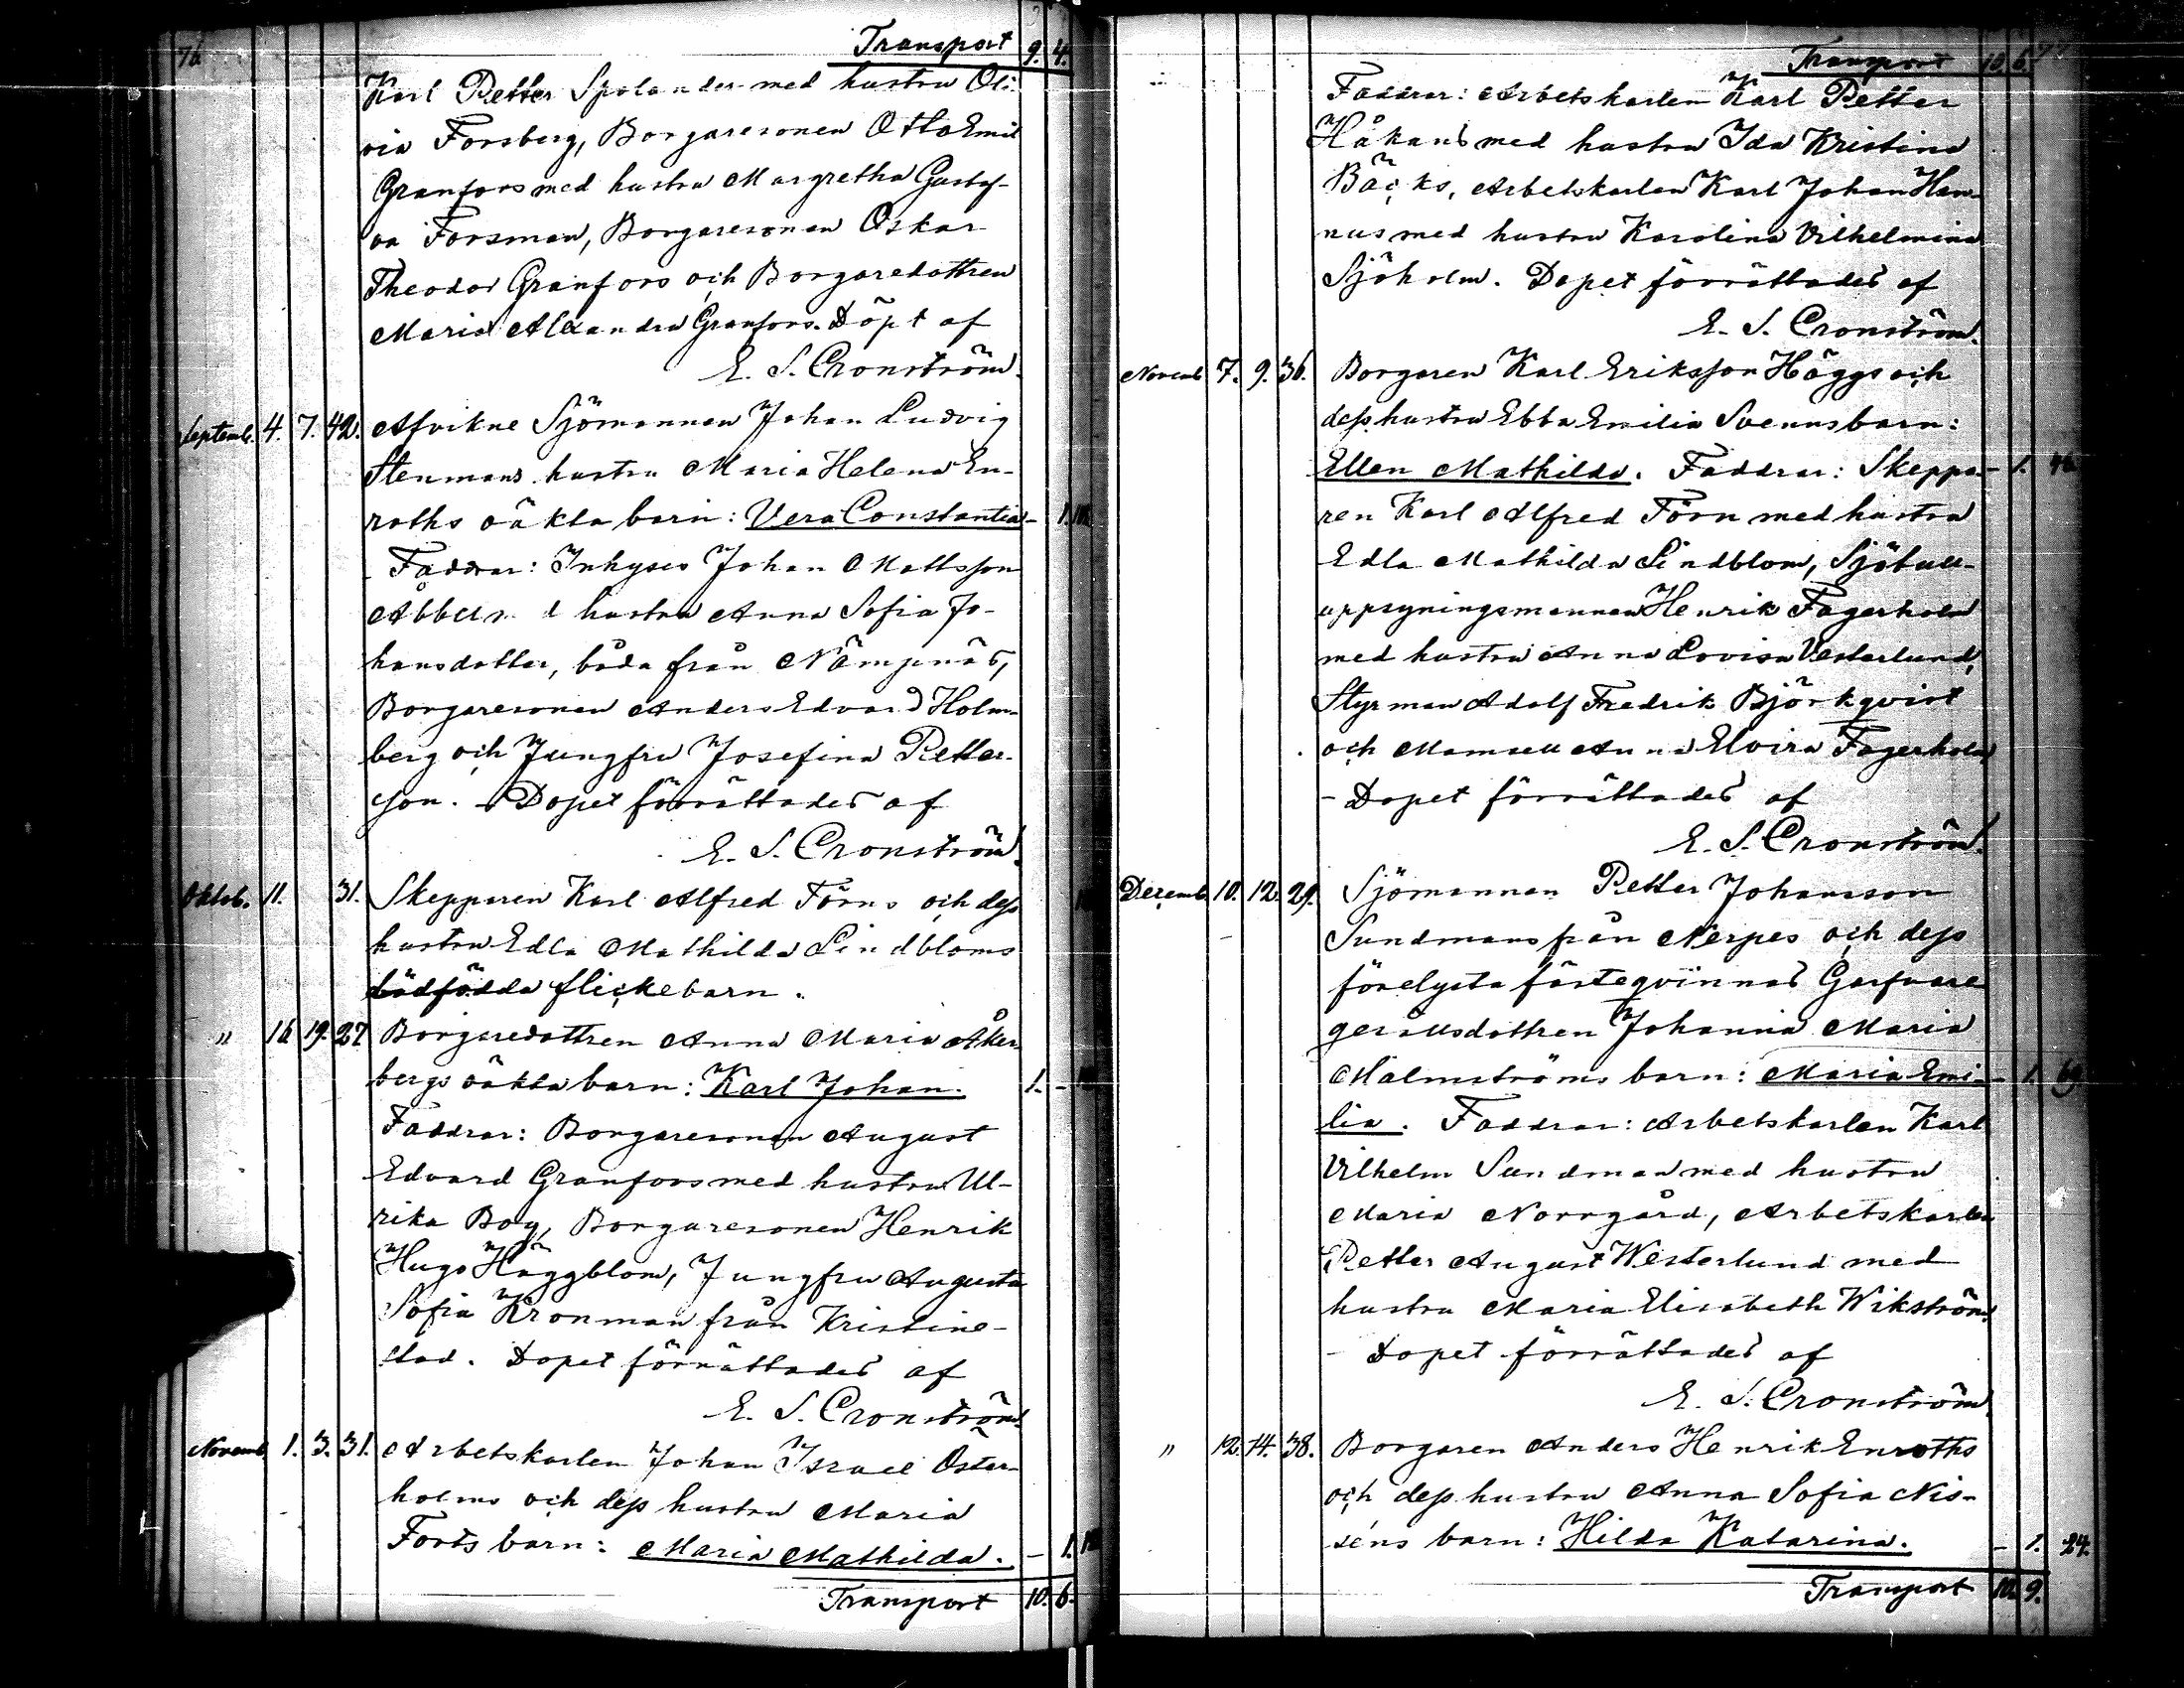 76.
Transport 9. 4.
Karl Petter Spolander med hustru Oli-
via Forsberg, Borgaresonen Otto Emil
Granfors med hustru Margretha Gustaf-
va Forsman, Borgaresonen Oskar
Theodor Granfors och Borgaredottren
Maria Alexandra Granfors. Döpt af
E. S. Cronström.
Septemb. 4. 7. 42. Afvikne Sjömannen Johan Ludvig
Stenmans hustru Maria Helena En-
roths oäkta barn: Vera Constantia - 1.
Faddrar: Inhyses Johan Mattsson
Åbbes med hustru Anna Sofia Jo-
hansdotter, båda från Nämpnäs,
Borgaresonen Anders Edvard Holm-
berg och Jungfru Josefina Petter-
son. - Dopet förrättades af
E. S. Cronström.
Oktob. 11. 31. Skepparen Karl Alfred Förns och dess
hustru Edla Mathilda Lindbloms
dödfödda flickebarn.
" 16 19. 27. Borgaredottren Anna Maria Åker-
bergs oäkta barn: Karl Johan. 1. -
Faddrar: Borgaresonen August
Edvard Granfors med hustru Ul-
rika Boy, Borgaresonen Henrik
Hugo Häggblom, Jungfru Augusta
Sofia Kronman från Kristine-
stad. Dopet förrättades af
E. S. Cronström.
Novemb. 1. 3. 31. Arbetskarlen Johan Israel Öster-
holms och dess hustru Maria
Forts barn: Maria Mathilda. - 1.
Transport 10. 6.
77
Transport 10. 6.
Faddrar: Arbetskarlen Karl Petter
Håkans med hustru Ida Kristina
Bäcks, Arbetskarlen Karl Johan Han-
nus med hustru Karolina Vilhelmina
Sjöholm. Dopet förrättades af
E. S. Cronström.
Novemb. 7. 9. 36. Borgaren Karl Eriksson Häggs och
dess hustru Ebba Emilia Svenns barn:
Ellen Mathilda. Faddrar: Skeppa- - 1.
ren Karl Alfred Förn med hustru
Edla Mathilda Lindblom, Sjötull-
uppsyningsmannen Henrik Fagerholm
med hustru Anna Lovisa Vesterlund,
Styrman Adolf Fredrik Björkqvist
och Mamsell Anna Elvira Fagerholm
- Dopet förrättades af
E. S. Cronström.
Decemb. 10. 12. 29. Sjömannen Petter Johansson
Sundmans från Nerpes och dess
förelysta fästeqvinnas Garfvare
gesällsdottren Johanna Maria
Malmströms barn: Maria Emi- - 1. 69.
lia. Faddrar: Arbetskarlen Karl
Vilhelm Sundman med hustru
Maria Norrgård, Arbetskarlen
Petter August Westerlund med
hustru Maria Elisabeth Wikström.
- Dopet förrättades af
E. S. Cronström.
" 12. 14. 38. Borgaren Anders Henrik Enroths
och dess hustru Anna Sofia Nis-
séns barn: Hilda Katarina. - 1. 24.
Transport 10. 9.